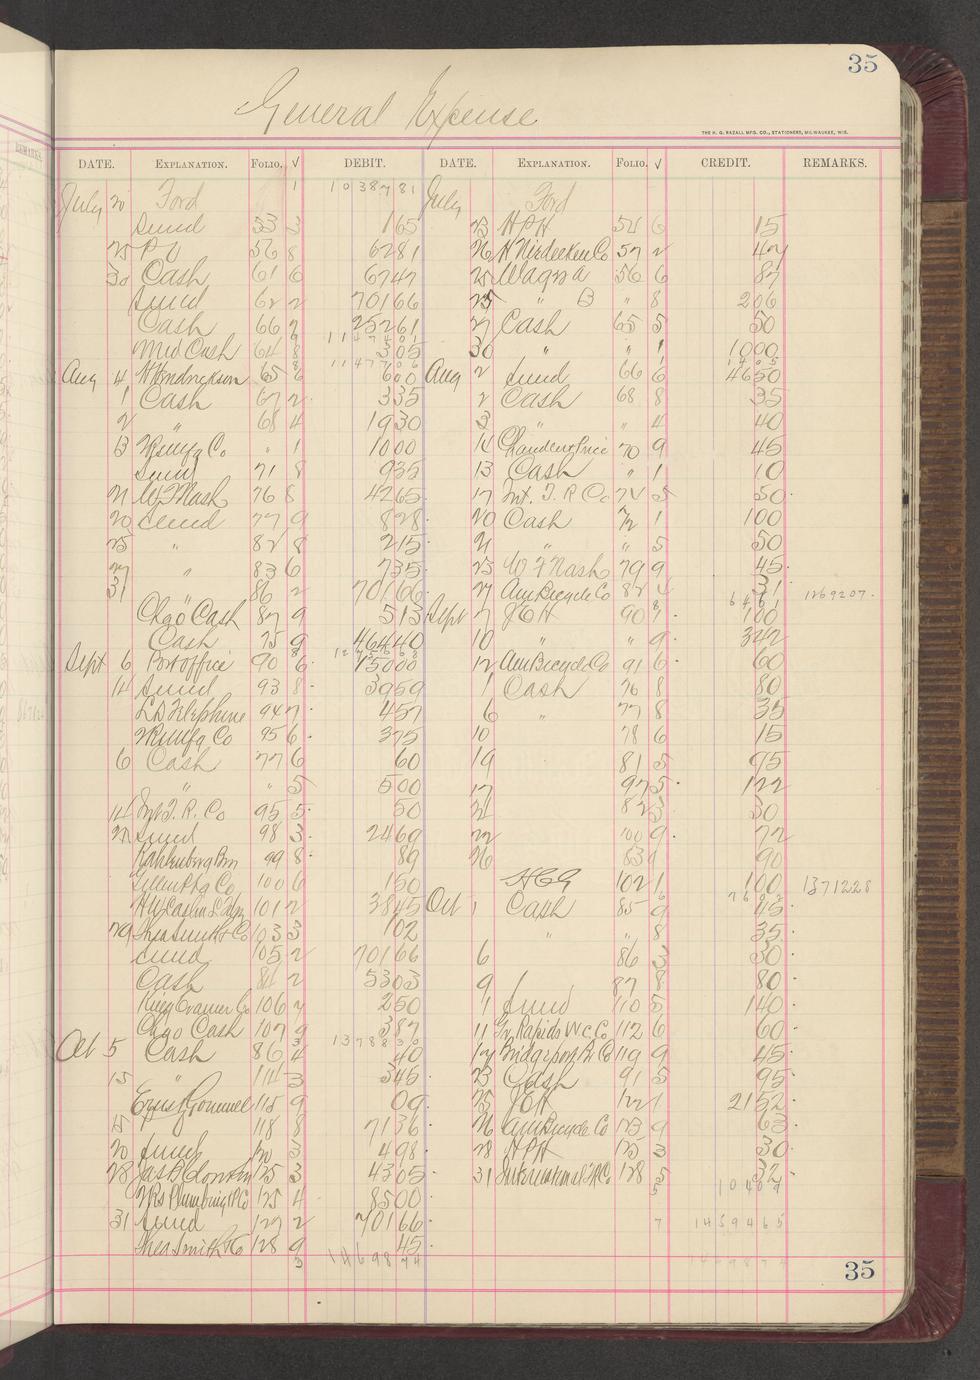 35
General Expense
THE H. G. RAZALL MFG. CO., STATIONERS, MILWAUKEE, WIS.
DATE. EXPLANATION. FOLIO. √ DEBIT. DATE. EXPLANATION. FOLIO. √ CREDIT. REMARKS.
July 20 Ford 1 1038781 July Ford
Sund 53 3 165 23 HPH 54 6 15
25 PO 56 8 6281 26 57 2 47
30 Cash 61 6 6747 25 Wagna 56 6 87
Sund 62 2 70166 25 " B " 8 206
Cash 66 2 25261 27 Cash 65 5 50
Mid Cash 64 8 305 30 " " 1 1000
Aug 4 Hendrickson 65 6 600 Aug 2 Sund 66 6 4650
1 Cash 67 2 335 2 Cash 68 8 35
2 " 68 4 1930 3 " " 4 40
13 " 1 1000 14 Chandler & Price 70 9 45
Sund 71 8 935 13 Cash " 1 10
21 W F Nash 76 8 4265 17 Int. T. R Co 74 5 50
20 Sund 77 9 828 20 Cash 72 1 100
25 " 82 8 215 21 " " 5 50
27 " 83 6 735 23 W F Nash 79 9 45
31 " 86 2 70166 27 Am Bicycle Co 82 4 31 1269207
Chgo Cash 87 9 513 Sept 7 JOH 90 1 100
Cash 75 9 46440 10 " " 9 322
Sept 6 Post office 90 6 15000 12 Am Bicycle Co 91 6 60
14 Sund 93 8 3959 1 Cash 76 8 80
L D Telephone 94 7 457 6 " 77 8 35
95 6 375 10 78 6 15
6 Cash 77 6 60 19 81 5 95
" " 5 500 17 97 5 122
14 Int. T. R. Co 95 5 50 21 82 3 30
21 Sund 98 3 2469 22 100 9 72
Kahlenberg Bro 99 8 89 26 83 9 90
Gillen Pkg Co 100 6 150 HCG 102 1 100 1371228
101 2 3845 Oct 1 Cash 85 9 45
29 Shea Smith & Co 103 3 102 " " 8 35
Sund 105 2 70166 6 86 3 30
Cash 84 2 5303 9 87 8 80
King Cramer Co 106 7 250 1 Sund 110 5 140
Chgo Cash 107 9 387 11 Gr. Rapids W c. Co 112 6 60
Oct 5 Cash 86 4 40 17 Bridgeport Br Co 119 9 45
15 " 114 3 345 23 Cash 91 5 95
Ernst Gommel 115 9 09 25 JOH 122 1 2152
15 118 8 7136 26 Am Bicycle Co 123 9 63
20 Sund 120 3 498 28 HPH 125 3 30
28 125 3 4305 31 128 5 32
5 10409
Plumbing Co 125 4 8500
31 Sund 127 2 70166 7 1459465
Shea Smith & Co 128 9 45
3 1469874
35